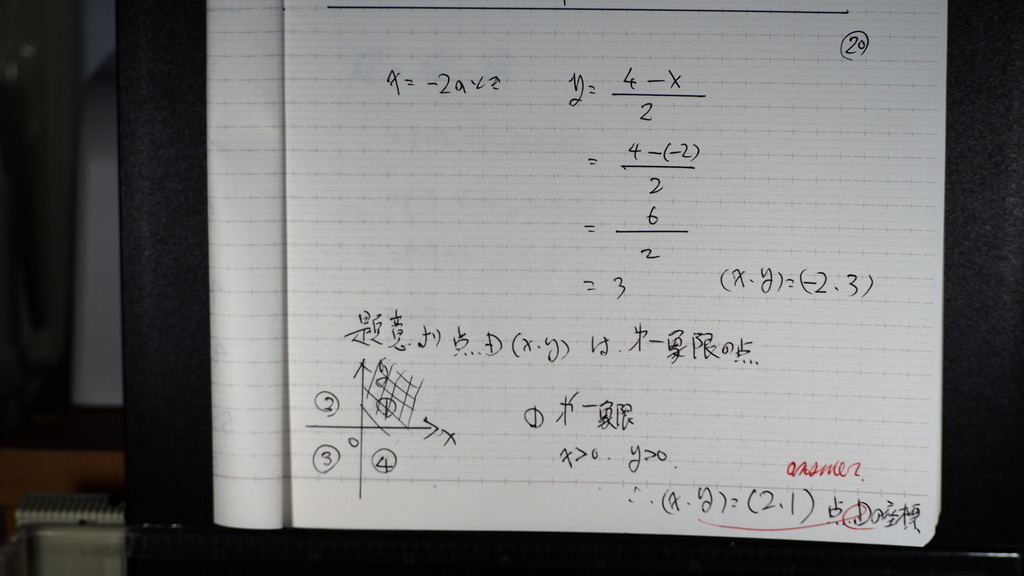 ⑳
x = -2のとき y = (4 - x)/2
= (4 - (-2))/2
= 6/2
= 3 (x, y) = (-2, 3)
題意より 点D (x, y) は、第一象限の点
y
② ①
0 x
③ ④
① 第一象限
x > 0, y > 0.
answer
∴ (x, y) = (2, 1) 点Dの座標